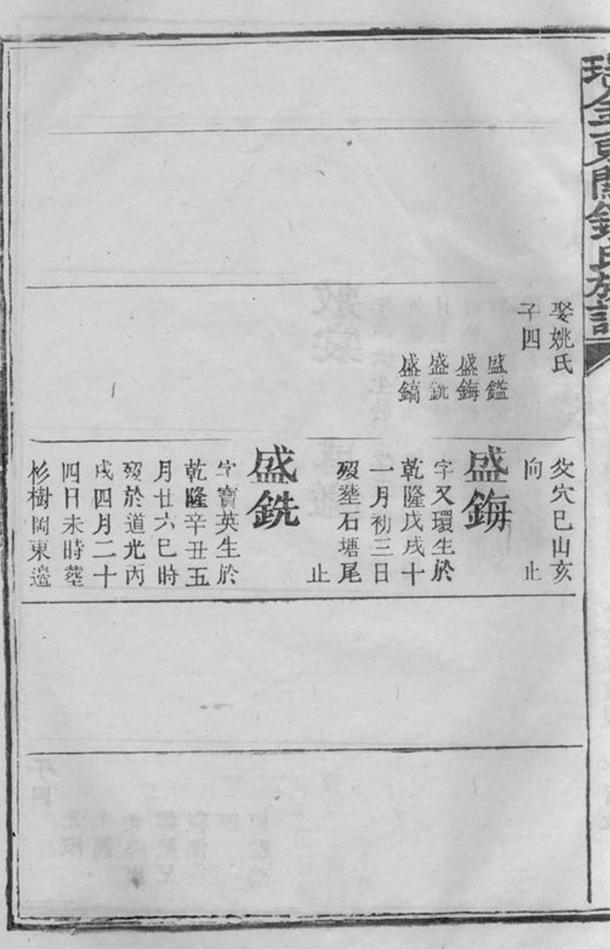 瑞金東關鍾氏族譜
娶姚氏
子四
盛鑑
盛鋂
盛銑
盛鎬
穴巳山亥
向　止
盛鋂
字又環生於
乾隆戊戌十
一月初三日
歿塟石塘尾
止
盛銑
字寶英生於
乾隆辛丑五
月廿六巳時
歿於道光丙
戌四月二十
四日未時塟
杉樹岡東邉